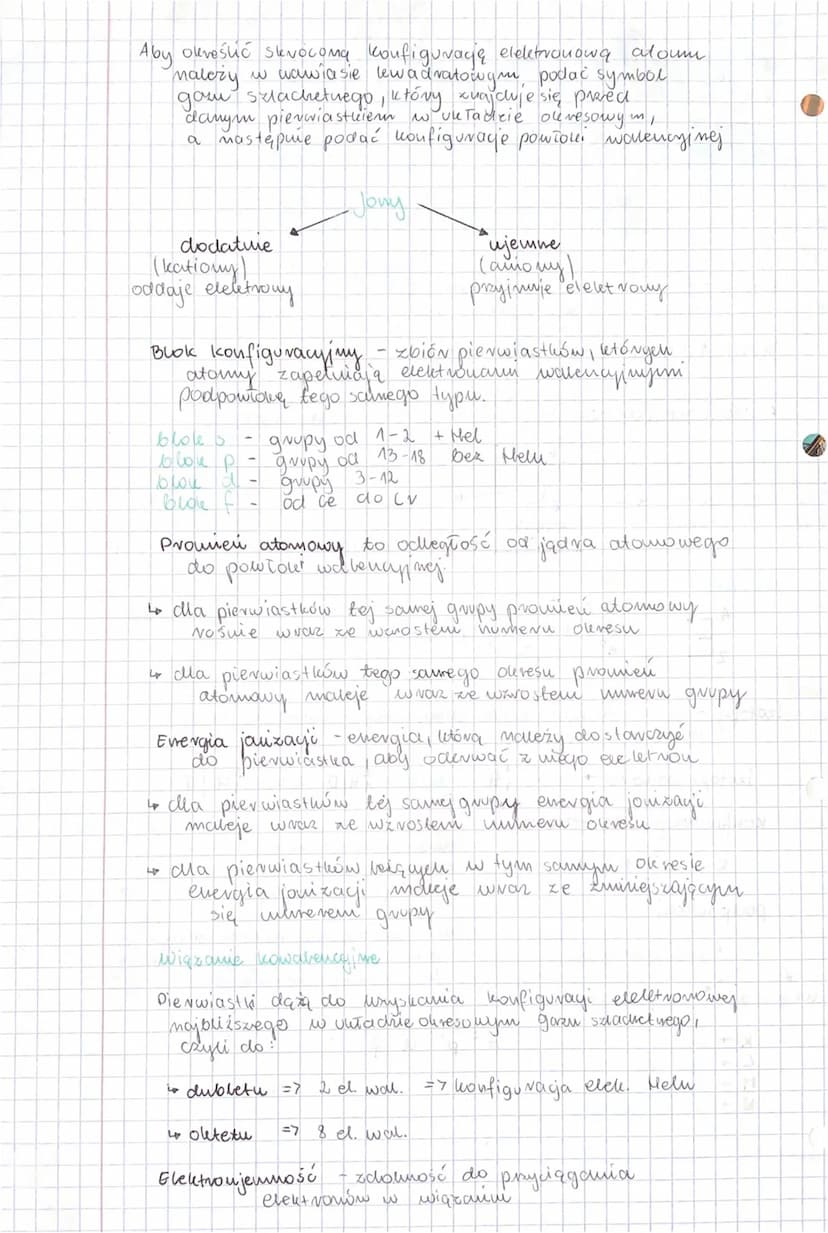 Aby określić skróconą konfigurację elektronową atomu
należy w nawiasie kwadratowym podać symbol
gazu szlachetnego, który znajduje się przed
danym pierwiastkiem w układzie okresowym,
a następnie podać konfigurację powłoki walencyjnej
Jony
dodatnie
(kationy)
oddaje elektrony
ujemne
(aniony)
przyjmuje elektrony
Blok konfiguracyjny - zbiór pierwiastków, których
atomy zapełniają elektronami walencyjnymi
podpowłokę tego samego typu.
blok s - grupy od 1-2 + Hel
blok p - grupy od 13-18 bez Helu
blok d - grupy 3-12
blok f - od Ce do Lr
Promień atomowy to odległość od jądra atomowego
do powłoki walencyjnej.
↳ dla pierwiastków tej samej grupy promień atomowy
rośnie wraz ze wzrostem numeru okresu
↳ dla pierwiastków tego samego okresu promień
atomowy maleje wraz ze wzrostem numeru grupy
Energia jonizacji - energia, którą należy dostarczyć
do pierwiastka, aby oderwać z niego elektron
↳ dla pierwiastków tej samej grupy energia jonizacji
maleje wraz ze wzrostem numeru okresu
↳ dla pierwiastków leżących w tym samym okresie
energia jonizacji maleje wraz ze zmniejszającym
się numerem grupy
Wiązanie kowalencyjne
Pierwiastki dążą do uzyskania konfiguracji elektronowej
najbliższego w układzie okresowym gazu szlachetnego,
czyli do:
↳ dubletu => 2 el. wal. => konfiguracja elek. Helu
↳ oktetu => 8 el. wal.
Elektroujemność - zdolność do przyciągania
elektronów w wiązaniu